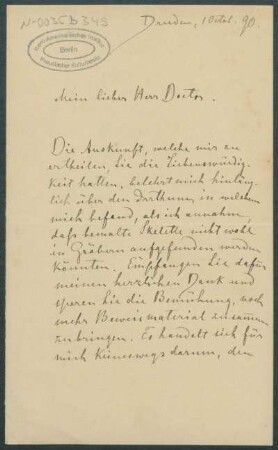 N-0035 b 349
Ibero-Amerikanisches Institut
Berlin
Preußischer Kulturbesitz
Dresden, 1 Octob. 90.
Mein lieber Herr Doctor.
Die Auskunft, welche mir zu
ertheilen, Sie die Liebenswürdig-
keit hatten, belehrt mich hinläng-
lich über den Irrthum in welchem
mich befand, als ich annahm,
daß bemalte Skelette nicht wohl
in Gräbern aufgefunden werden
könnten. Empfangen Sie dafür
meinen herzlichen Dank und
sparen Sie die Bemühung, noch
mehr Beweismaterial zusammen
zubringen. Es handelt sich für
mich keineswegs darum, den